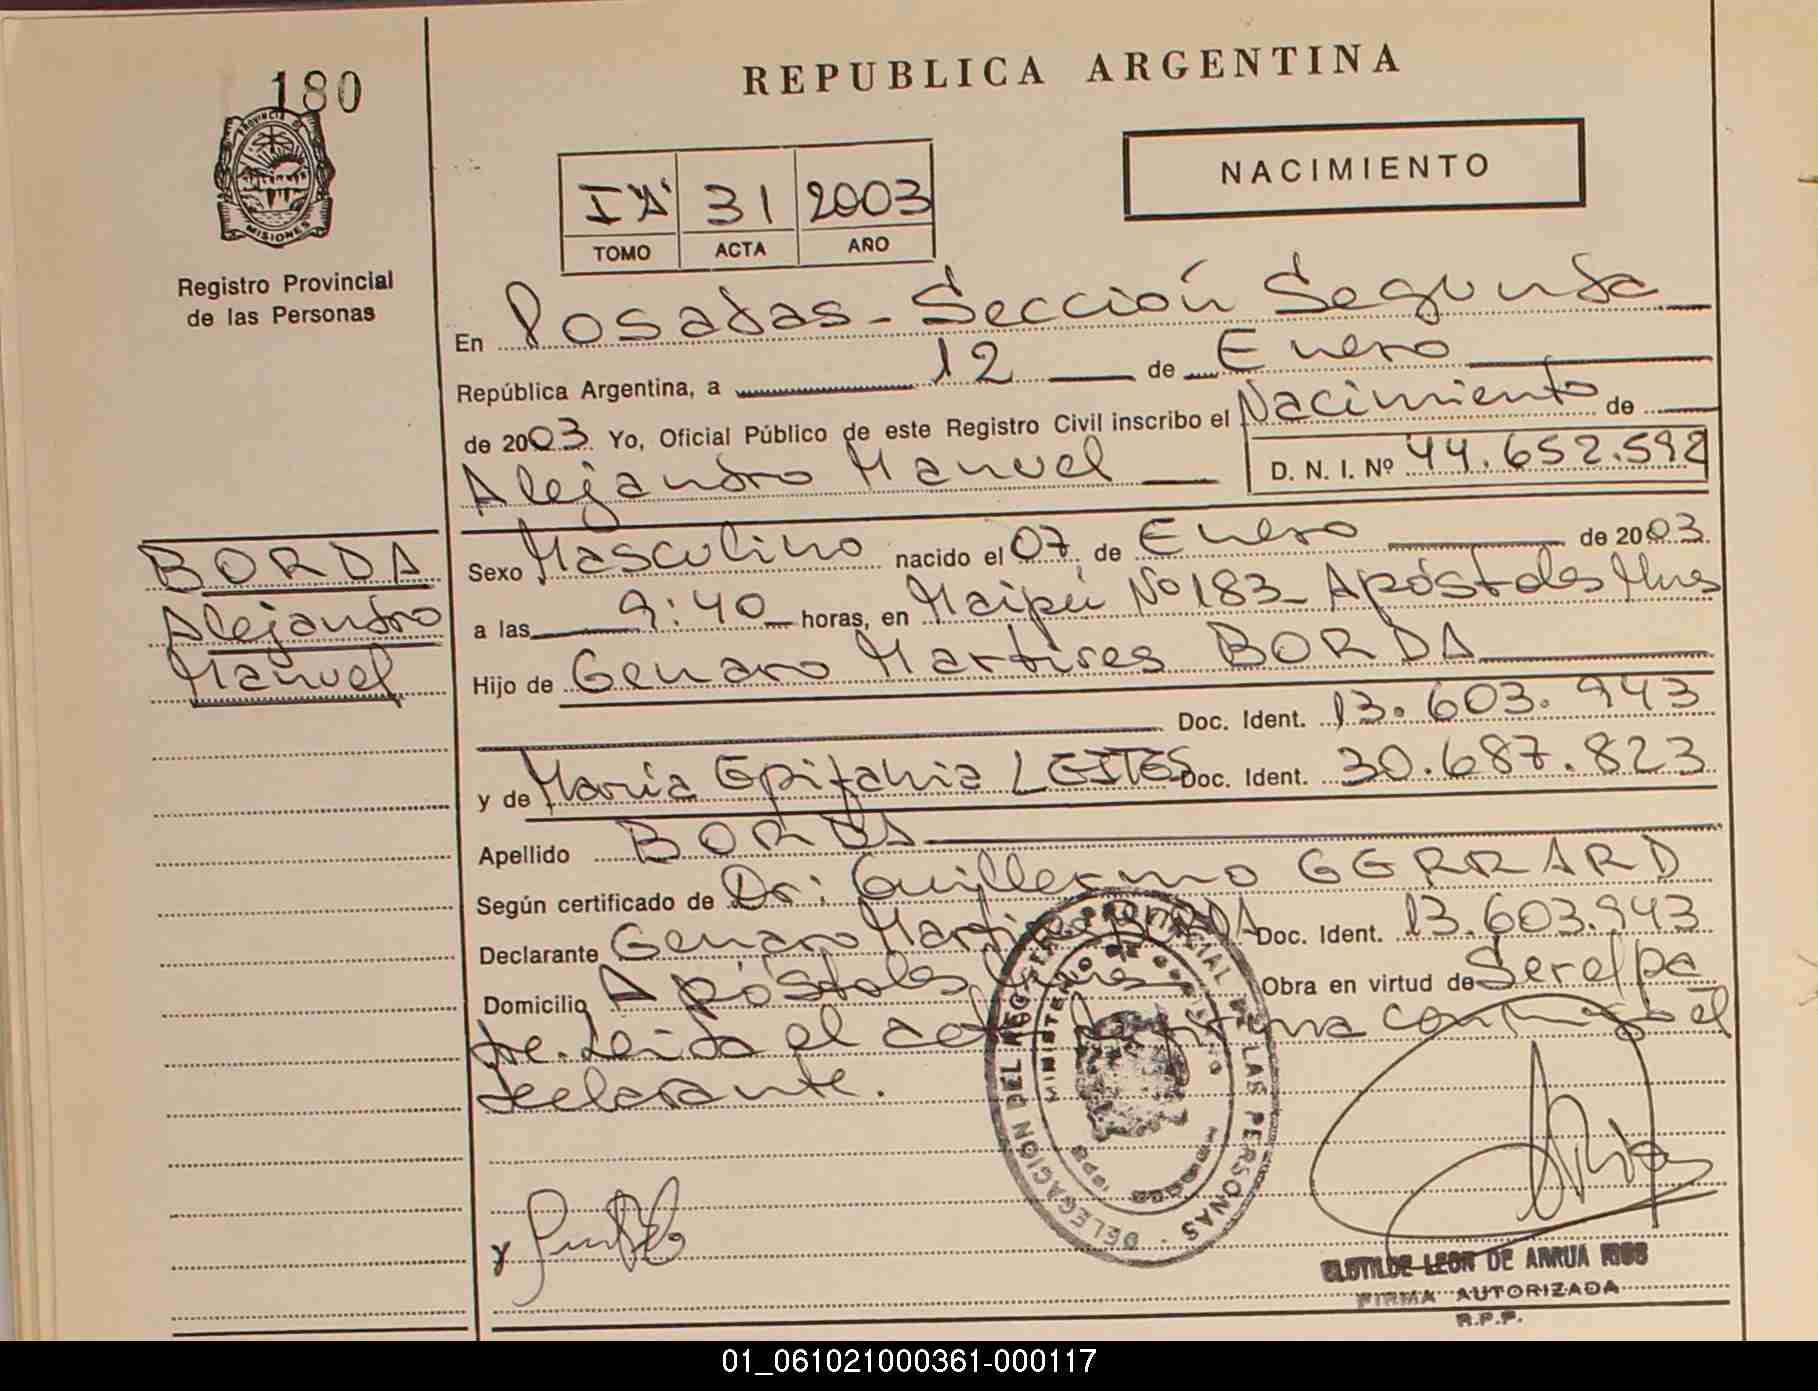 180
PROVINCIA DE
MISIONES
Registro Provincial
de las Personas
REPUBLICA ARGENTINA
NACIMIENTO
31 2003
TOMO ACTA AÑO
En Posadas - Sección Segunda
República Argentina, a 12 de Enero
de 2003. Yo, Oficial Público de este Registro Civil inscribo el Nacimiento de
Alejandro Manuel D. N. I. Nº 44.652.592
BORDA
Alejandro
Manuel
Sexo Masculino nacido el 07 de Enero de 2003.
a las 9:40 horas, en Maipú Nº 183 - Apóstoles Mnes
Hijo de Genaro Martires BORDA
Doc. Ident. 13.603.943
y de María Epifania LEITES Doc. Ident. 30.687.823
Apellido BORDA
Según certificado de Dr: Guillermo GERRARD
Declarante Genaro Martires BORDA Doc. Ident. 13.603.943
Domicilio Apóstoles Mnes Obra en virtud de Ser el pa
dre. Leída el acta la firma conmigo el
declarante.
DELEGACION DEL REGISTRO PROVINCIAL DE LAS PERSONAS
MINISTERIO DE GOBIERNO
CLOTILDE LEON DE ARRUA RIOS
FIRMA AUTORIZADA
R.P.P.
01_061021000361-000117